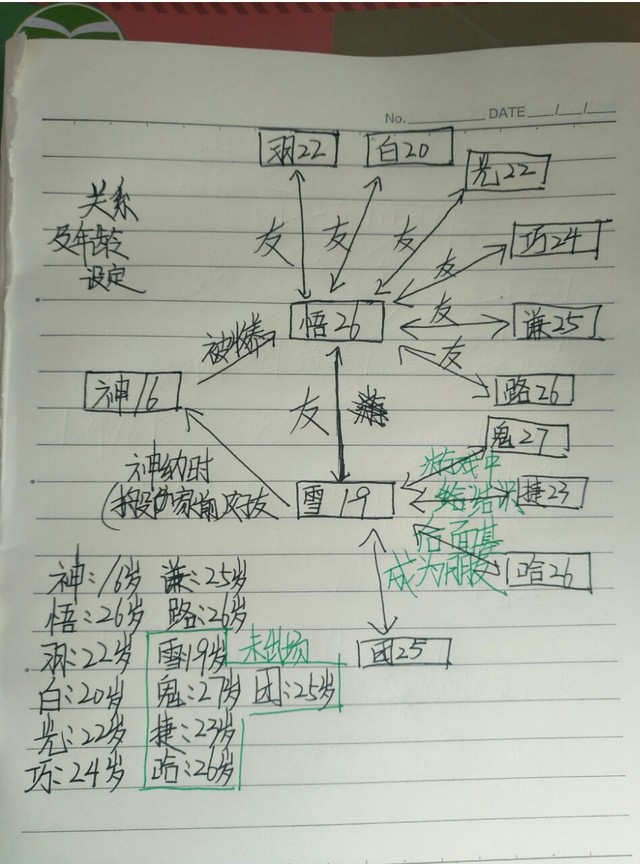 No. DATE / /
羽22
白20
光22
关系
及年龄
设定
友
友
友
友
巧24
悟26
友
谦25
被爆
友
路26
神16
友
鬼27
神幼时
游戏中
捷23
雪19
结识
后面
成为朋友
哈26
神:16岁 谦:25岁
悟:26岁 路:26岁
羽:22岁 雪19岁 未出场
团25
白:20岁 鬼:27岁 团:25岁
光:22岁 捷:23岁
巧:24岁 哈:26岁